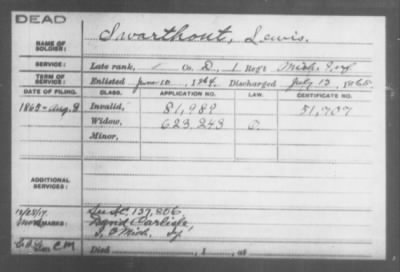 DEAD
NAME OF SOLDIER: Swarthout, Lewis.
SERVICE: Late rank, Co. D, 1. Reg't Mich. Inf
TERM OF SERVICE: Enlisted June 10, 1864. Discharged July 13, 1865.
DATE OF FILING. CLASS. APPLICATION NO. LAW. CERTIFICATE NO.
1865-Aug. 9 Invalid, 81,989 51,707
Widow, 623,243 O.
Minor,
ADDITIONAL SERVICES:
12/28/17. See C. 137,806
REMARKS: David Carlisle,
Mich. Inf
C M Died , 1 , at